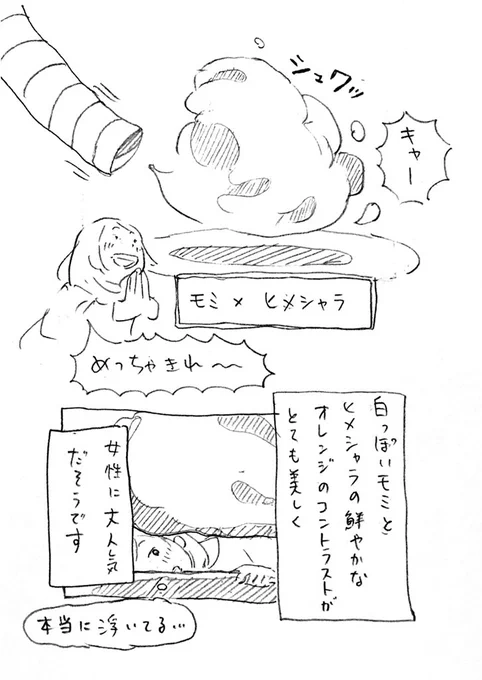 シュワッ
キャー
モミ × ヒメシャラ
めっちゃきれ〜〜
白っぽいモミと
ヒメシャラの鮮やかな
オレンジのコントラストが
とても美しく
女性に大人気
だそうです
本当に浮いてる…